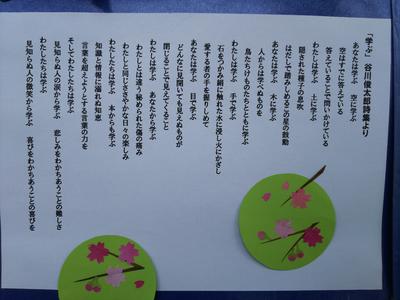 「学ぶ」 谷川俊太郎詩集より
あなたは学ぶ 空に学ぶ
空はすでに答えている
答えていることで問いかけている
わたしは学ぶ 土に学ぶ
隠された種子の息吹
はだしで踏みしめるこの星の鼓動
あなたは学ぶ 木に学ぶ
人からは学べぬものを
鳥たちけものたちとともに学ぶ
わたしは学ぶ 手で学ぶ
石をつかみ絹に触れた水に浸し火にかざし
愛する者の手を握りしめて
あなたは学ぶ 目で学ぶ
どんなに見開いても見えぬものが
閉じることで見えてくること
わたしは学ぶ あなたから学ぶ
わたしとは違う秘められた傷の痛み
わたしと同じささやかな日々の楽しみ
わたしたちは学ぶ 本からも学ぶ
知識と情報に溺れぬ知恵
言葉を超えようとする言葉の力を
そしてわたしたちは学ぶ
見知らぬ人の涙から学ぶ 悲しみをわかちあうことの難しさ
わたしたちは学ぶ
見知らぬ人の微笑から学ぶ 喜びをわかちあうことの喜びを